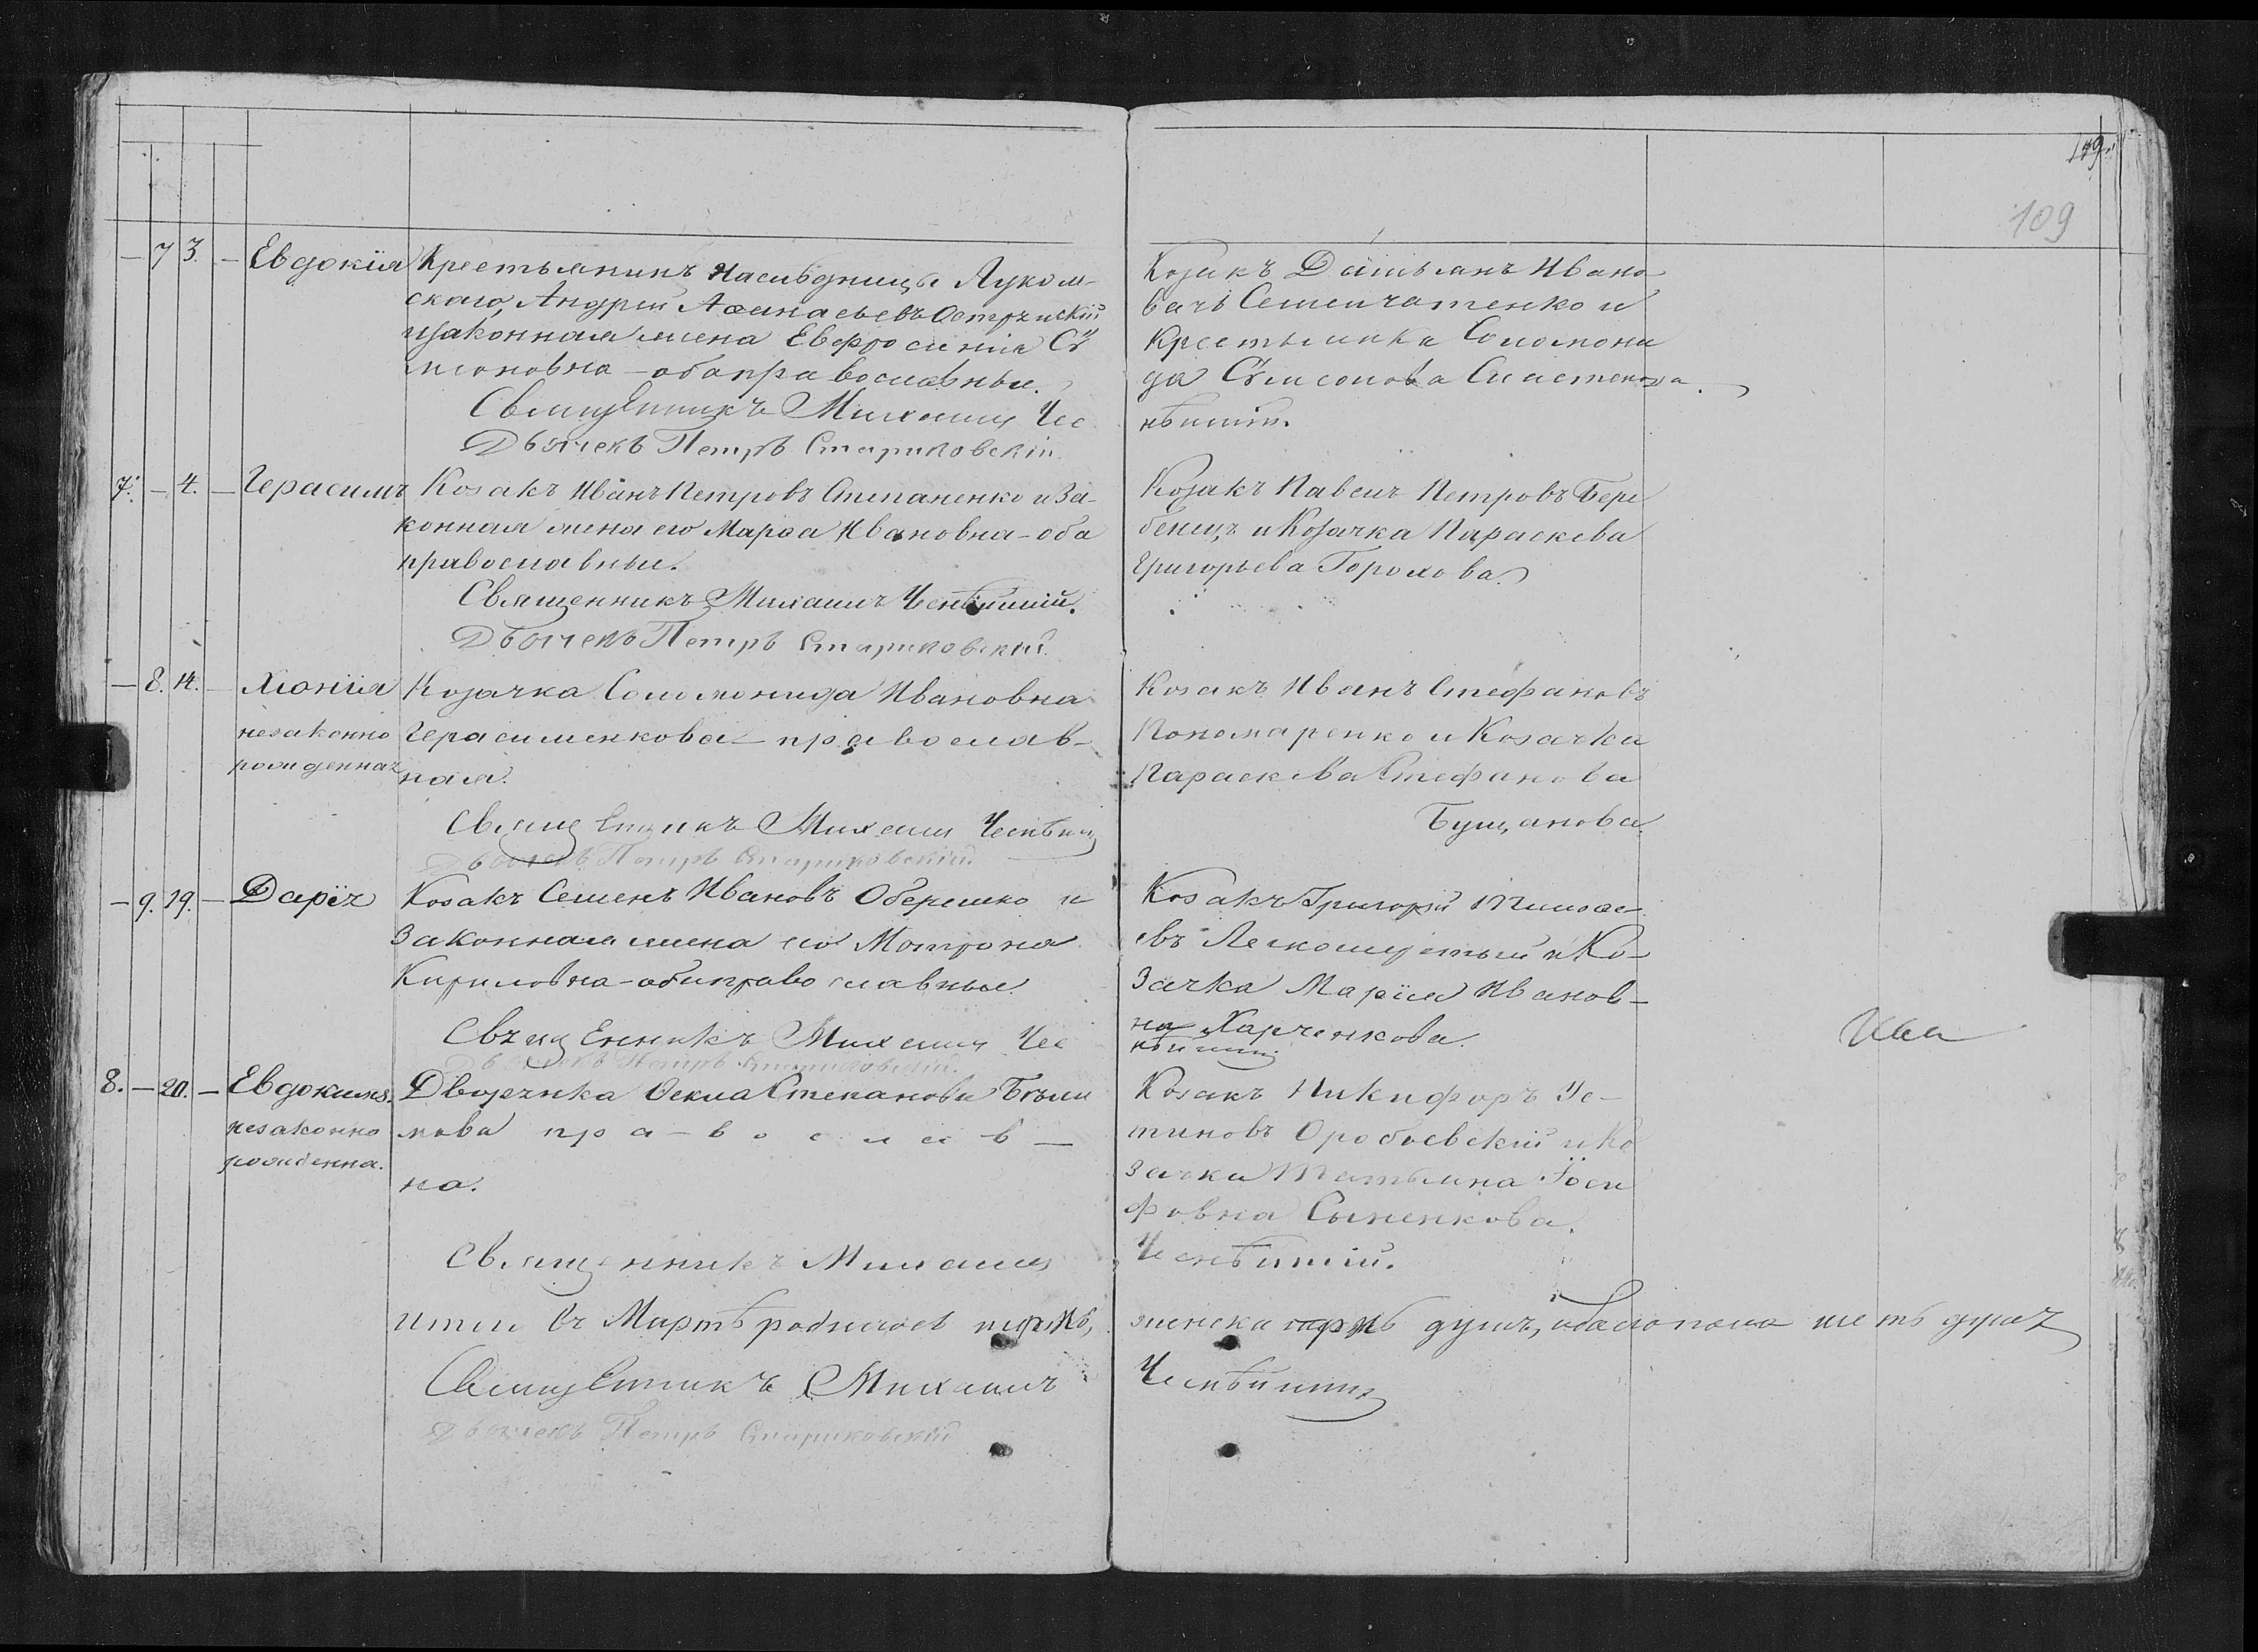 109
— 7 3. — Евдокія Крестьянинъ наслѣдницы Луком-
скаго, Андрей Аѳанасьевъ
изаконная жена Евфросинія Сѵ
меоновна — оба православные.
Священникъ Михаилъ Чес
Дьячекъ Петръ Стариковскій.
Козакъ Ивано
вичъ и
крестьянка Соломони
да Сѵмеонова
нѣйшій.
7. — 4. — Герасимъ Козакъ Иванъ Петровъ Степаненко и за-
конная жена его Марѳа Ивановна — оба
православные.
Священникъ Михаилъ
Дьячекъ Петръ Стариковскій.
Козакъ Павелъ Петровъ Бере
бенецъ и Козачка Параскева
Григорьева Горохова.
— 8. 14. — Хіонія Козачка Соломонида Ивановна
незаконно Герасименкова — православ-
рожденная ная.
Священникъ Михаилъ
Дьячекъ Петръ Стариковскій.
Козакъ Иванъ Стефановъ
Пономаренко и Козачка
Параскева Стефанова
Бущанова.
— 9. 19. — Дарія Козакъ Семенъ Ивановъ Оберемко и
законная жена его Мотрона
Кириловна — оба православные.
Священникъ Михаилъ Чес
Дьячекъ Петръ Стариковскій.
Козакъ Григорій Тимоѳе
евъ и Ко-
зачка Марія Иванов-
на Харченкова.
нѣйшій.
8. — 20. — Евдокимъ. Дворянка Ѳекла Степанова
незаконно мова пра-вослав —
рожденна. на.
Священникъ Михаилъ
Козакъ Никифоръ Ус-
тиновъ Оробьевскій и Ко
зачка Татьяна Іоси
фовна Сыненкова.
Итого въ Мартѣ родилось
женска душъ, обаего пола душъ
Священникъ Михаилъ
Дьячекъ Петръ Стариковскій